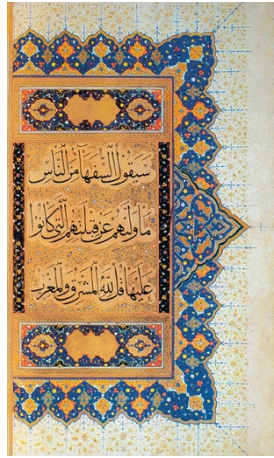 سَيَقُولُ السُّفَهَاءُ مِنَ النَّاسِ
مَا وَلَّهُمْ عَنْ قِبْلَتِهِمُ الَّتِي كَانُوا
عَلَيْهَا قُلْ لِلَّهِ الْمَشْرِقُ وَالْمَغْرِبُ